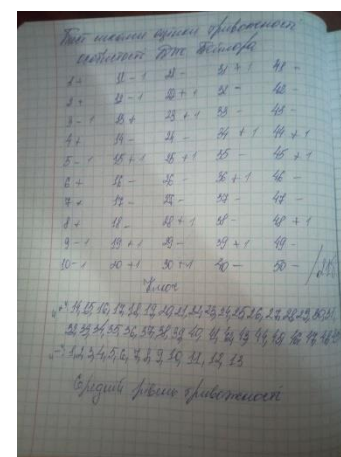 Тест шкали оцінки тривожності
особистості Дж Тейлора
1+ 11-1 21- 31+1 41-
2+ 12-1 22+1 32- 42-
3-1 13+ 23+1 33- 43-
4+ 14- 24- 34+1 44+1
5-1 15+1 25+1 35- 45+1
6+ 16- 26- 36+1 46-
7+ 17- 27- 37- 47-
8+ 18- 28+1 38- 48+1
9-1 19+1 29- 39+1 49-
10-1 20+1 30+1 40- 50-
Ключ
"+" 14,15,16,17,18,19,20,21,22,23,24,25,26,27,28,29,30,31,
32,33,34,35,36,37,38,39,40,41,42,43,44,45,46,47,48
"-" 1,2,3,4,5,6,7,8,9,10,11,12,13
Середній рівень тривожності